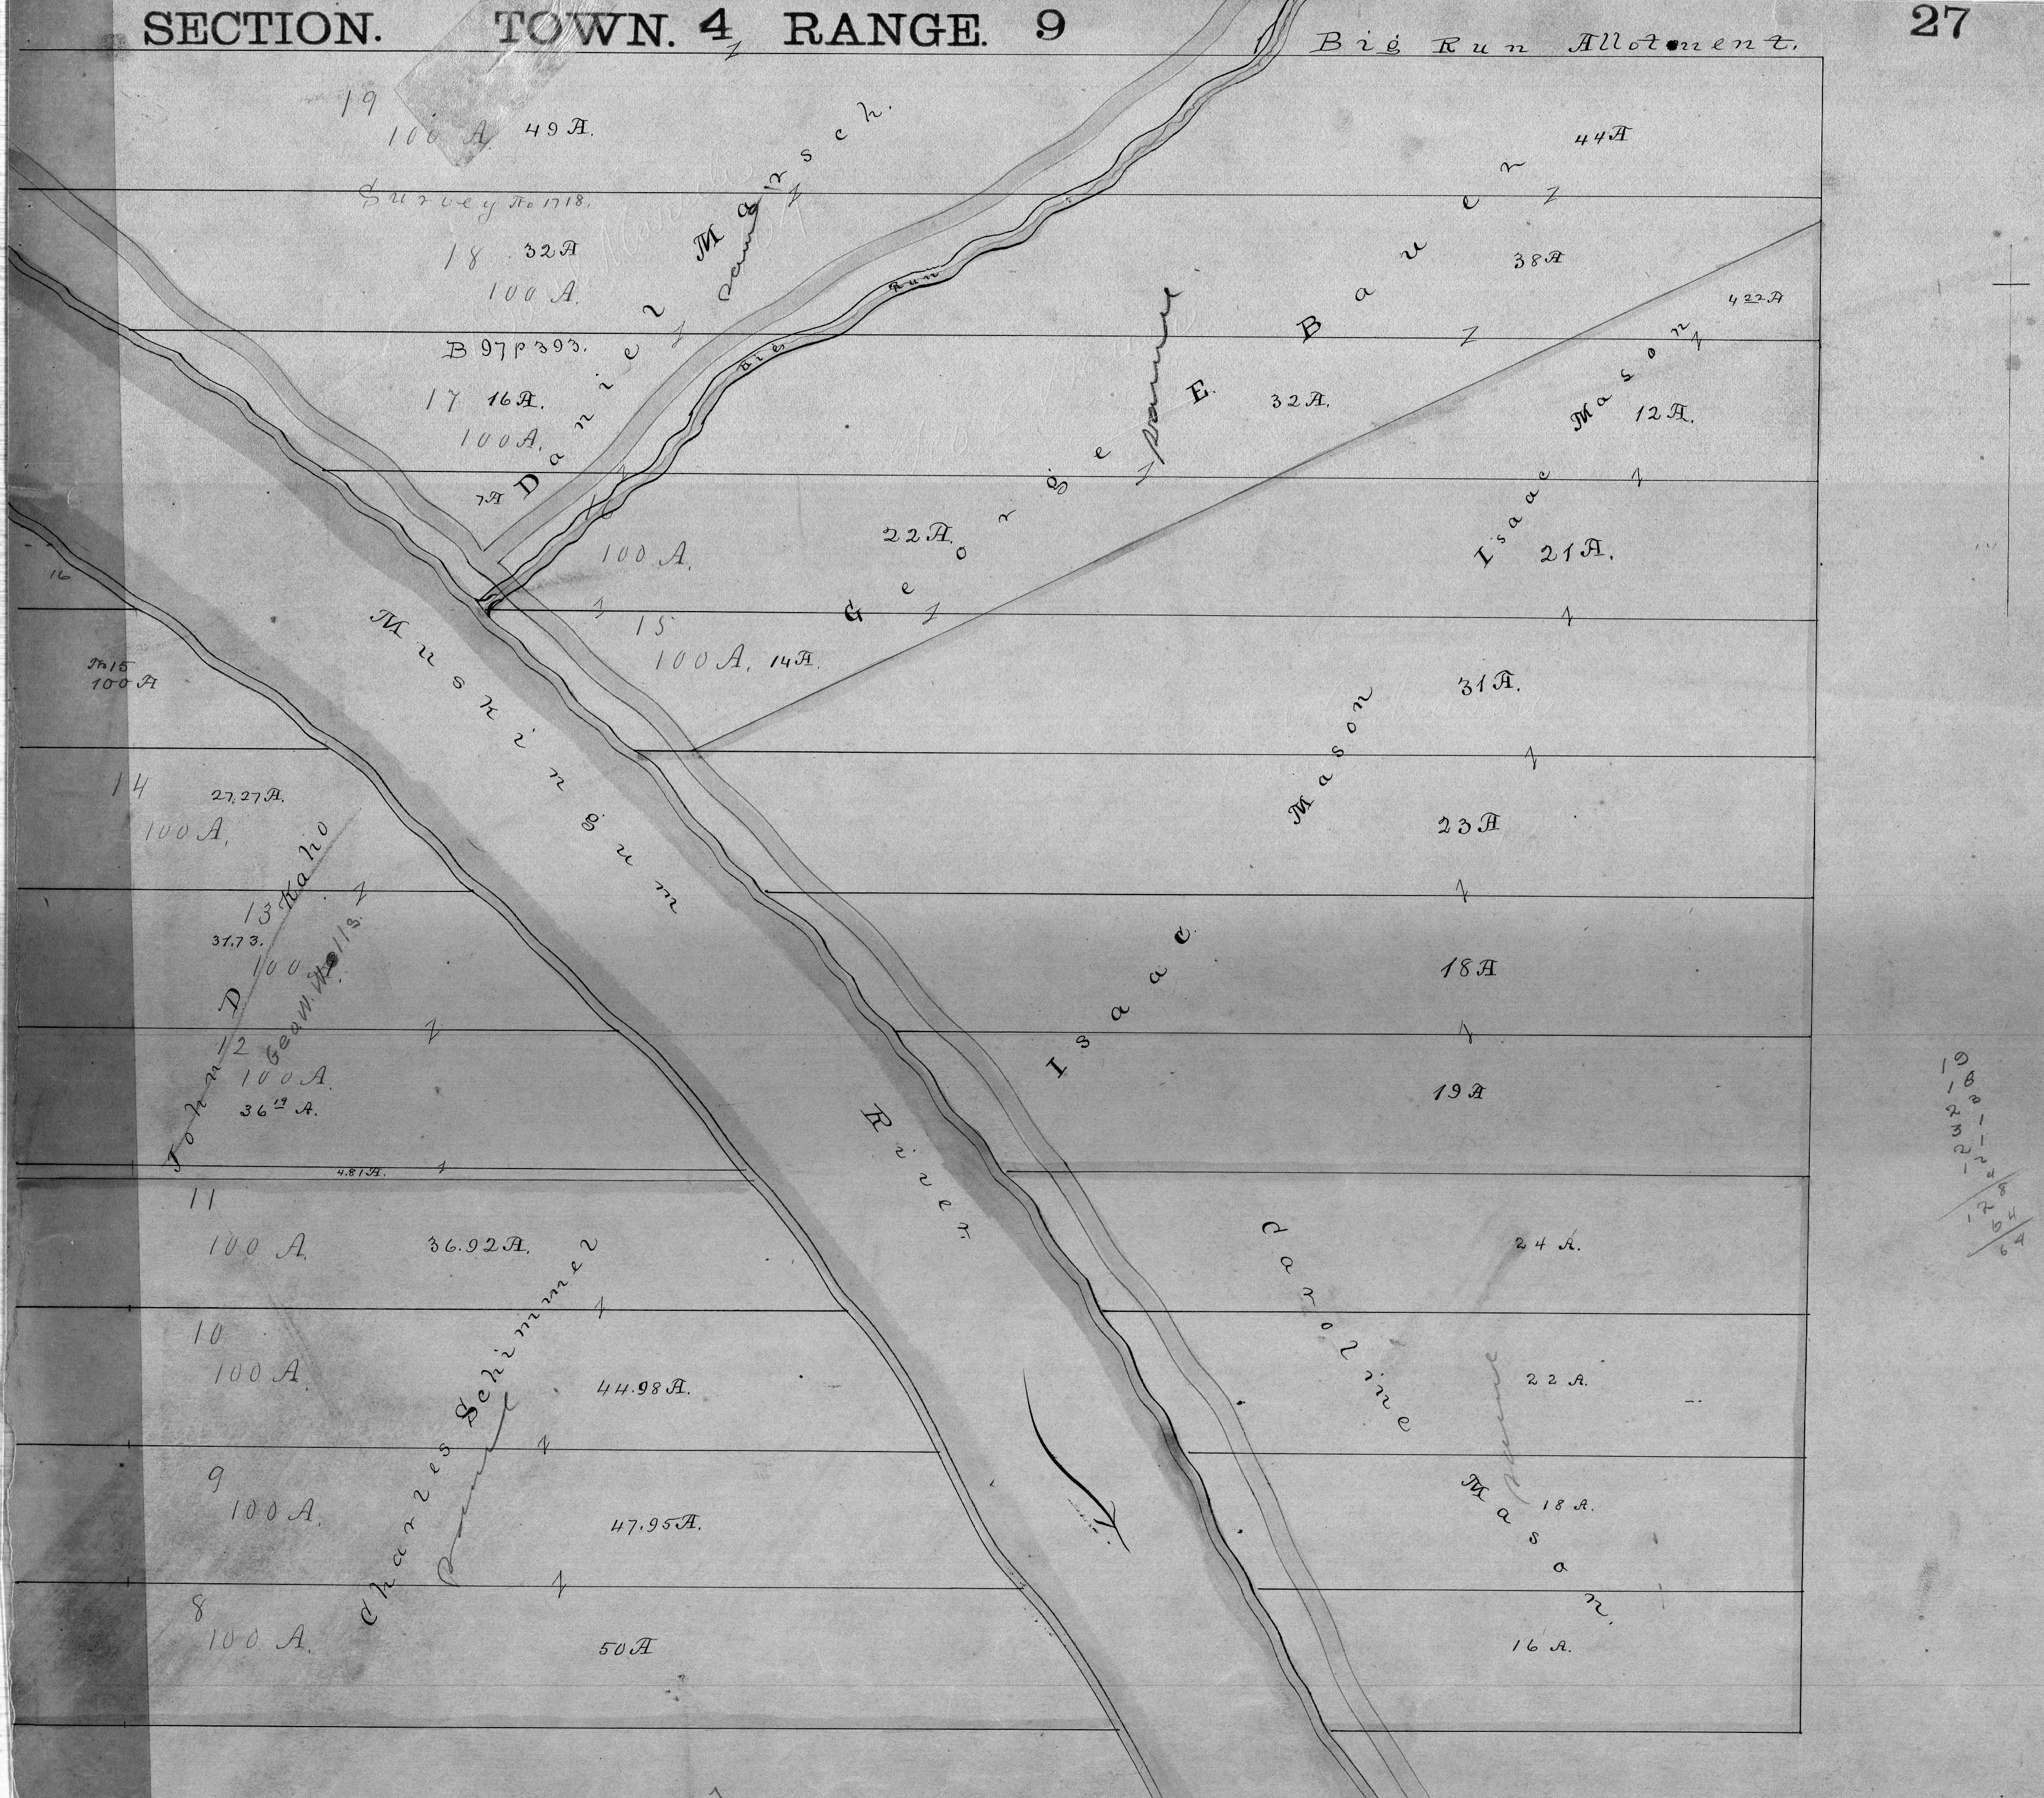 SECTION. TOWN. 4 RANGE. 9
27
Big Run Allotment.
19
100 A.
49 A.
44 A
Survey No 1718.
18
32 A
100 A.
38 A
4 22 A
B 97 P 393.
17
16 A.
100 A.
32 A.
12 A.
Daniel Marsch.
same
Big Run
George E. Bauer
same
Isaac Mason
7 A
16
100 A.
22 A.
21 A.
16
15
100 A. 14 A.
31 A.
No 15
100 A
Muskingum River
14
27.27 A.
100 A.
23 A
Isaac Mason
13
31.73.
100
18 A
John D Kaho
Geo. W. Wells.
12
100 A.
36 19 A.
19 A
4.81 A.
11
100 A.
36.92 A.
24 A.
Charles Schimmel
same
Caroline Mason.
same
10
100 A.
44.98 A.
22 A.
9
100 A.
47.95 A.
18 A.
8
100 A.
50 A
16 A.